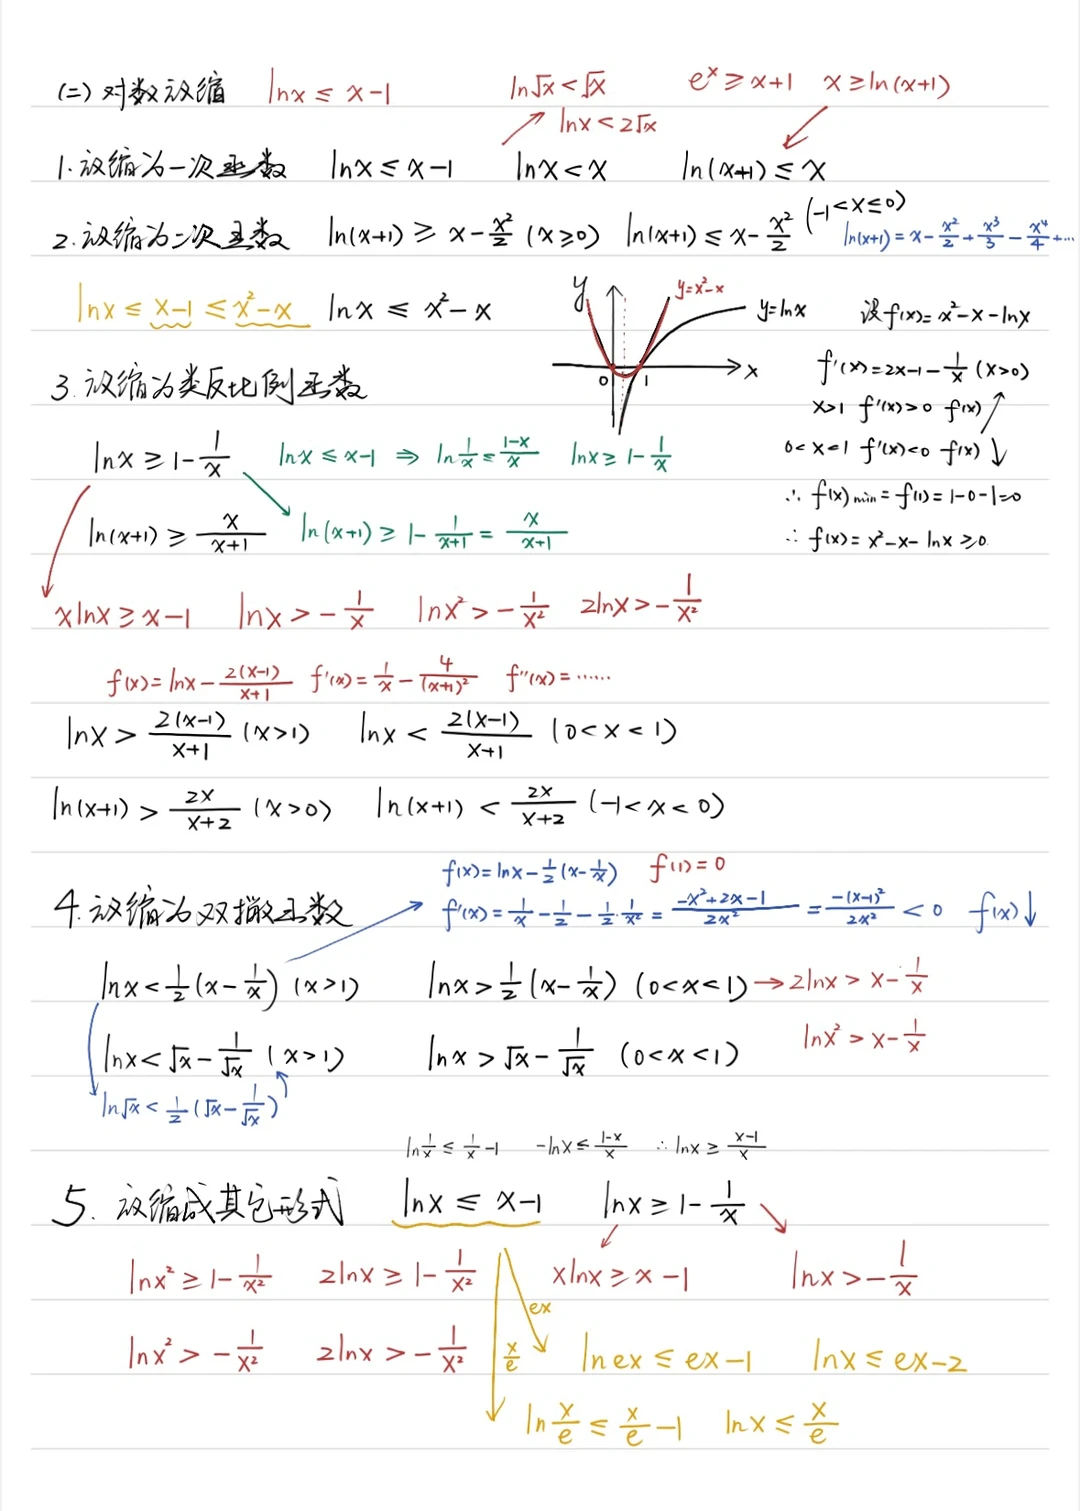 (二) 对数放缩 lnx ≤ x-1 ln√x < √x e^x ≥ x+1 x ≥ ln(x+1)
lnx < 2√x
1. 放缩为一次函数 lnx ≤ x-1 lnx < x ln(x+1) ≤ x
2. 放缩为二次函数 ln(x+1) ≥ x - x²/2 (x≥0) ln(x+1) ≤ x - x²/2 (-1<x≤0)
ln(x+1) = x - x²/2 + x³/3 - x⁴/4 + ...
lnx ≤ x-1 ≤ x²-x lnx ≤ x²-x
y y=x²-x y=lnx
0 1 x
设 f(x)= x²-x-lnx
f'(x)=2x-1-1/x (x>0)
x>1 f'(x)>0 f(x)↗
0<x<1 f'(x)<0 f(x)↓
∴ f(x)min = f(1) = 1-0-1=0
∴ f(x)= x²-x-lnx ≥0.
3. 放缩为类反比例函数
lnx ≥ 1 - 1/x lnx ≤ x-1 ⇒ ln 1/x ≤ (1-x)/x lnx ≥ 1 - 1/x
ln(x+1) ≥ x/(x+1) ln(x+1) ≥ 1 - 1/(x+1) = x/(x+1)
xlnx ≥ x-1 lnx > -1/x lnx² > -1/x² 2lnx > -1/x²
f(x) = lnx - 2(x-1)/(x+1) f'(x) = 1/x - 4/(x+1)² f''(x) = ......
lnx > 2(x-1)/(x+1) (x>1) lnx < 2(x-1)/(x+1) (0<x<1)
ln(x+1) > 2x/(x+2) (x>0) ln(x+1) < 2x/(x+2) (-1<x<0)
f(x) = lnx - 1/2(x - 1/x) f(1)=0
4. 放缩为双撇函数 f'(x) = 1/x - 1/2 - 1/2·1/x² = (-x²+2x-1)/2x² = -(x-1)²/2x² < 0 f(x)↓
lnx < 1/2(x - 1/x) (x>1) lnx > 1/2(x - 1/x) (0<x<1) → 2lnx > x - 1/x
lnx < √x - 1/√x (x>1) lnx > √x - 1/√x (0<x<1) lnx² > x - 1/x
ln√x < 1/2(√x - 1/√x)
ln 1/x ≤ 1/x - 1 -lnx ≤ (1-x)/x ∴ lnx ≥ (x-1)/x
5. 放缩成其它形式 lnx ≤ x-1 lnx ≥ 1 - 1/x
lnx² ≥ 1 - 1/x² 2lnx ≥ 1 - 1/x² xlnx ≥ x-1 lnx > -1/x
ex
lnx² > -1/x² 2lnx > -1/x² x/e lnex ≤ ex-1 lnx ≤ ex-2
ln x/e ≤ x/e - 1 lnx ≤ x/e